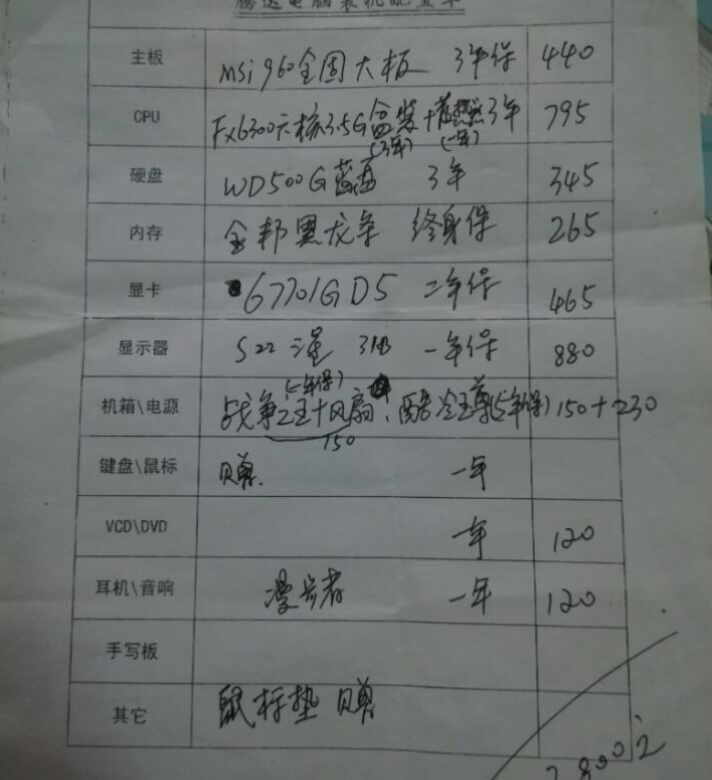 腾达电脑装机配置单
主板 msi 960全固大板 3年保 440
CPU FX6300六核3.5G盒装+散热 3年 795
(3年) (一年)
硬盘 WD500G蓝盘 3年 345
内存 金邦黑龙条 终身保 265
显卡 67701GD5 二年保 465
显示器 S22 三星 一年保 880
(一年保)
机箱\电源 战争之王+风扇、酷冷至尊(5年保) 150+230
150
键盘\鼠标 赠 一年
VCD\DVD 一年 120
耳机\音响 漫步者 一年 120
手写板
其它 鼠标垫 赠